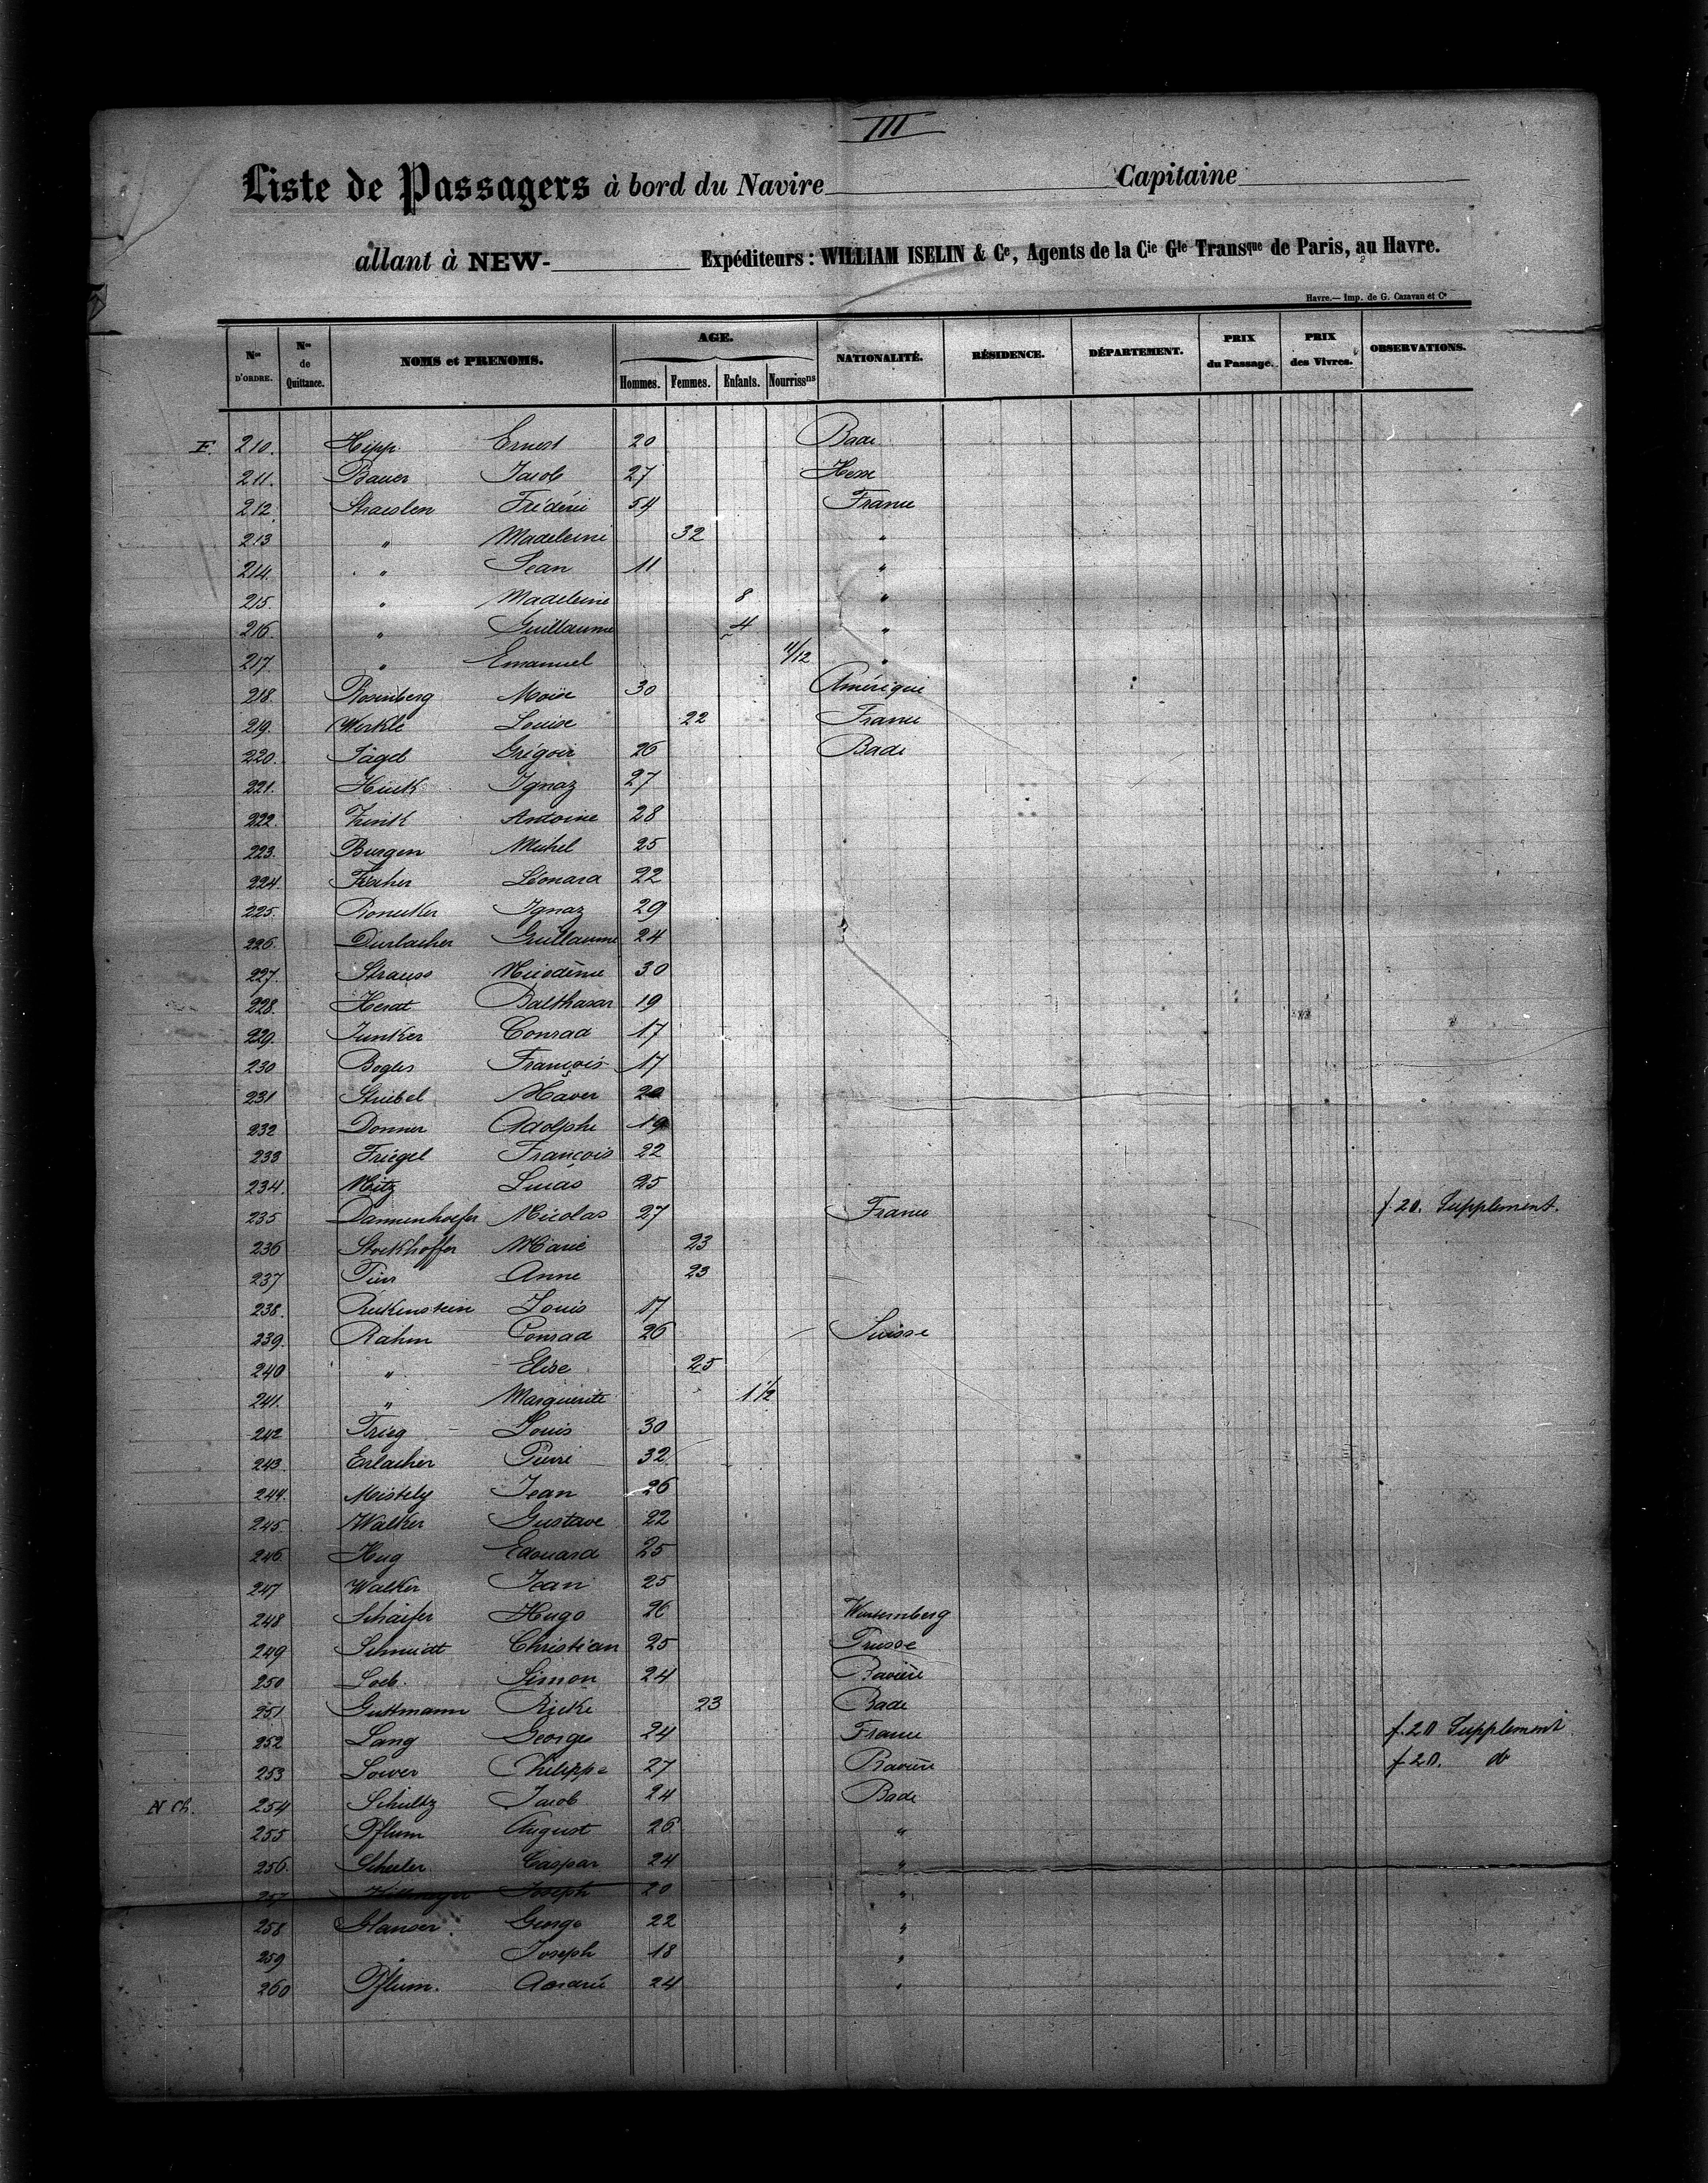 III
Liste de Passagers à bord du Navire Capitaine
allant à NEW- Expéditeurs : WILLIAM ISELIN & Ce, Agents de la Cie Gle Transque de Paris, au Havre.
Havre.— Imp. de G. Cazavan et Ce
Nos D'ORDRE. Nos de Quittance. NOMS et PRENOMS. AGE. Hommes. Femmes. Enfants. Nourrissns NATIONALITÉ. RÉSIDENCE. DÉPARTEMENT. PRIX du Passage. PRIX des Vivres. OBSERVATIONS.
F. 210. Hipp Ernest 20 Bade
211. Bauer Jacob 27 Hesse
212. Straeslen Fréderic 54 France
213 " Madeleine 32 "
214. " Jean 11 "
215. " Madeleine 8 "
216. " Guillaume 4 "
217. " Emanuel 11/12 "
218. Rosenberg Moise 30 Amérique
219. Werkle Louise 22 France
220. Tägel Grégoir 26 Bade
221. Huck Ignaz 27
222. Zink Antoine 28
223. Burgen Michel 25
224. Fischer Léonard 22
225. Ronecker Ignaz 29
226. Durlacher Guillaume 24
227. Strauss Nicodème 30
228. Herat Balthasar 19
229. Junker Conrad 17
230 Bogles François 17
231 Striebel Xaver 20
232 Donner Adolphe 19
233 Friegel François 22
234. Metz Lucas 25
235 Dannenhoefer Nicolas 27 France f. 20. Supplement.
236 Stockhoffer Marie 23
237 Anne 23
238. Reckenstein Louis 17
239. Rahm Conrad 26 Suisse
240 " Elise 25
241. " Marguerite 1 1/2
242 Trieg Louis 30
243. Erlacher Pierre 32
244. Mistely Jean 26
245. Walker Gustave 22
246. Hug Edouard 25
247 Walker Jean 25
248 Schaifer Hugo 26 Wurtemberg
249 Schmidt Christian 25 Prusse
250 Loeb. Simon 24 Bavière
251 Guttmann Rieke 23 Bade
252 Lang George 24 France f. 20 Supplement
253 Lower Philippe 27 Bavière f 20. do
N Ch. 254 Schultz Jacob 24 Bade
255 Pflum August 26 "
256. Schuler Caspar 24 "
257 Joseph 20 "
258 Hanser George 22 "
259 " Joseph 18 "
260 Pflum. André 24 "